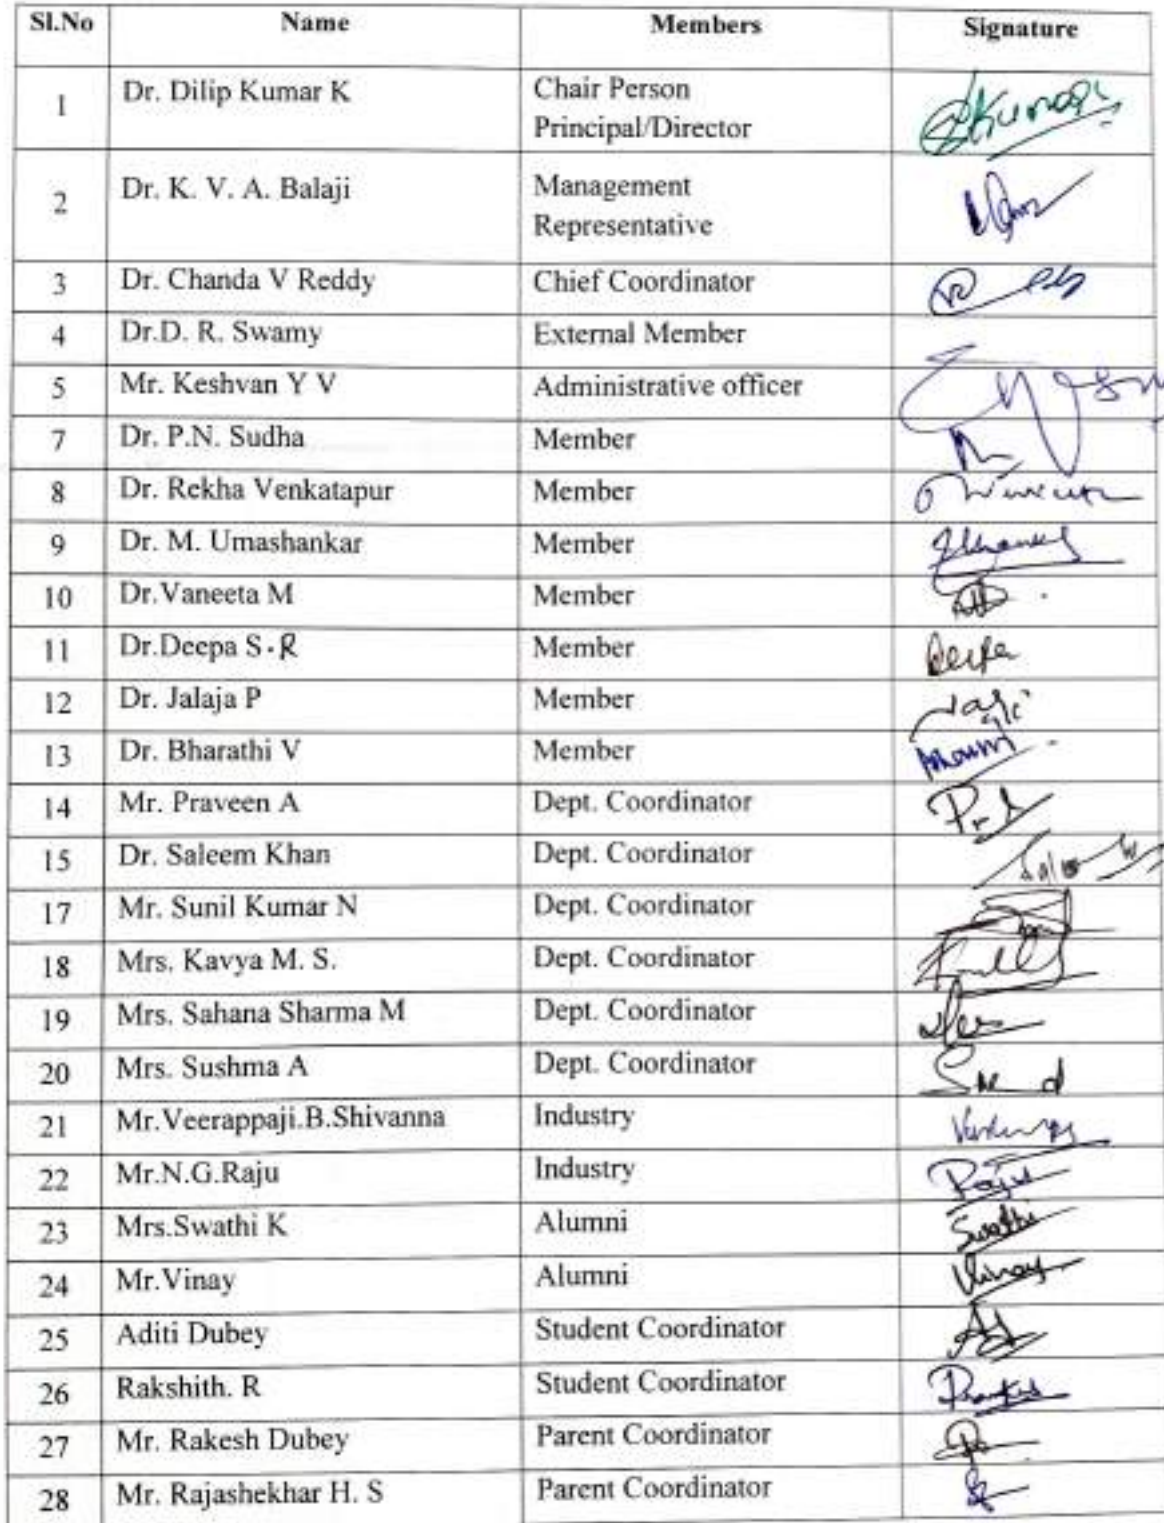 Sl.No Name Members Signature
1 Dr. Dilip Kumar K Chair Person
Principal/Director
2 Dr. K. V. A. Balaji Management
Representative
3 Dr. Chanda V Reddy Chief Coordinator
4 Dr.D. R. Swamy External Member
5 Mr. Keshvan Y V Administrative officer
7 Dr. P.N. Sudha Member
8 Dr. Rekha Venkatapur Member
9 Dr. M. Umashankar Member
10 Dr.Vaneeta M Member
11 Dr.Deepa S.R Member Deepa
12 Dr. Jalaja P Member
13 Dr. Bharathi V Member
14 Mr. Praveen A Dept. Coordinator
15 Dr. Saleem Khan Dept. Coordinator
17 Mr. Sunil Kumar N Dept. Coordinator
18 Mrs. Kavya M. S. Dept. Coordinator
19 Mrs. Sahana Sharma M Dept. Coordinator
20 Mrs. Sushma A Dept. Coordinator
21 Mr.Veerappaji.B.Shivanna Industry
22 Mr.N.G.Raju Industry Raju
23 Mrs.Swathi K Alumni Swathi
24 Mr.Vinay Alumni Vinay
25 Aditi Dubey Student Coordinator
26 Rakshith. R Student Coordinator
27 Mr. Rakesh Dubey Parent Coordinator
28 Mr. Rajashekhar H. S Parent Coordinator